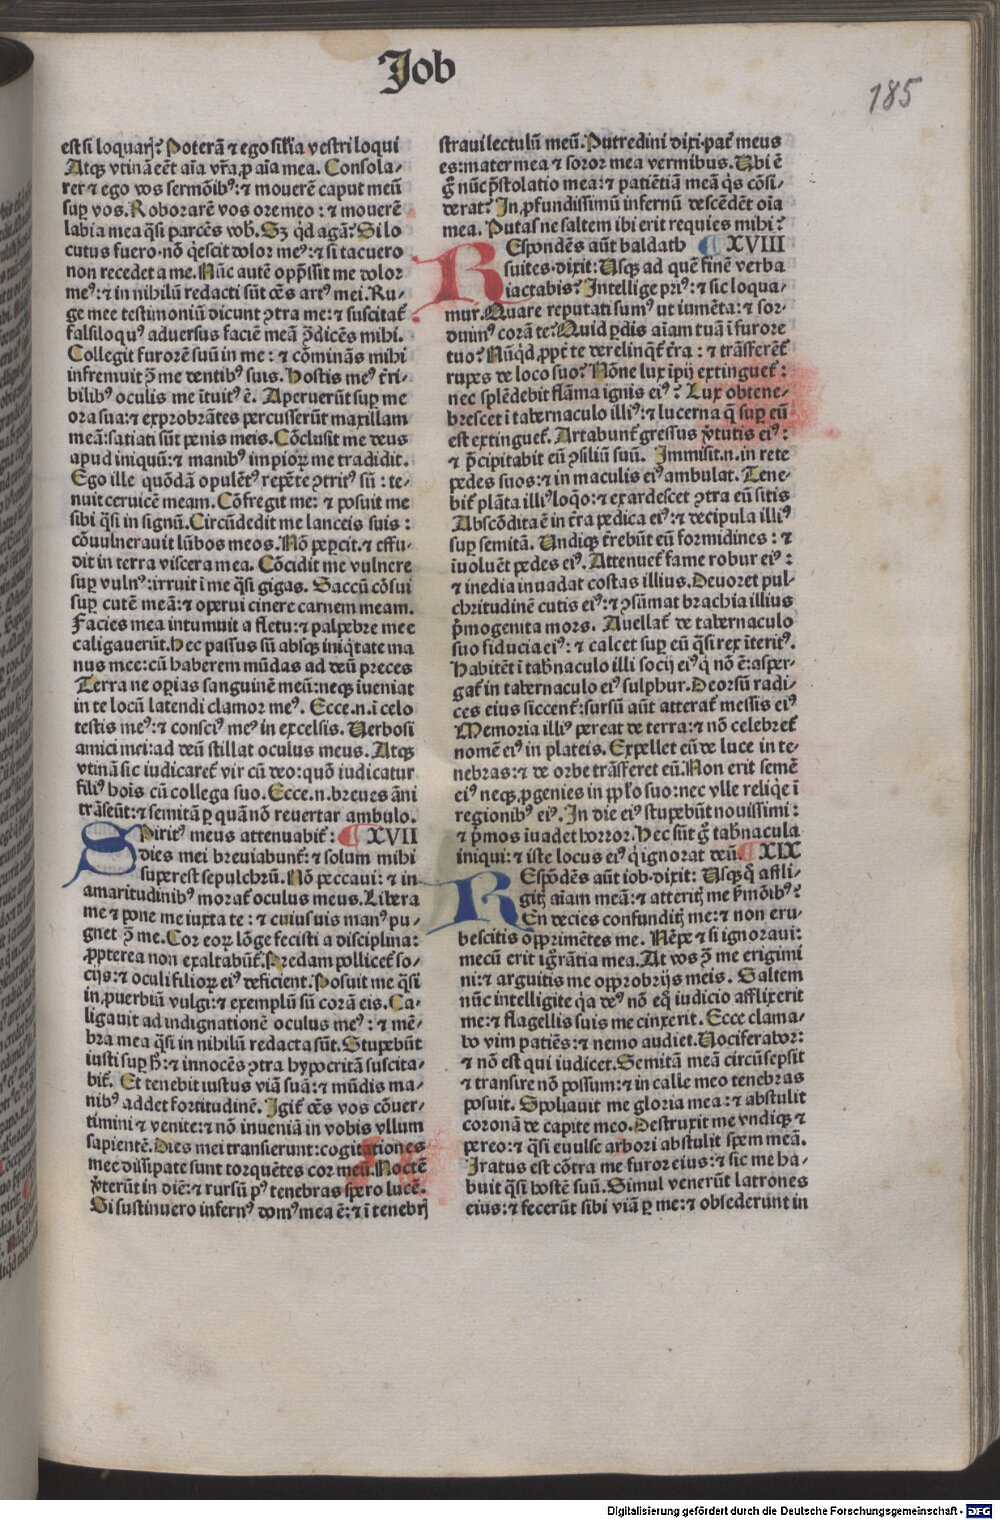 Job
185
est si loquarj? Poterā ⁊ ego sil'ia vestri loqui
Atqꝫ vtinā eēt aīa vr̄a ꝓ aīa mea. Consola-
rer ⁊ ego vos sermōibꝰ: ⁊ mouerē caput meū
suꝑ vos. Roborarē vos ore meo: ⁊ mouerē
labia mea q̄si parcēs vob̄. Sꝫ qͥd agā? Si lo
cutus fuero nō qͥescit dolor meꝰ: ⁊ si tacuero
non recedet a me. Nūc autē opp̄ssit me dolor
meꝰ: ⁊ in nihilū redacti sūt oēs artꝰ mei. Ru-
ge mee testimoniū dicunt ꝯtra me: ⁊ suscitat᷑
falsiloquꝰ aduersus faciē meā ꝯ̄dicēs mihi.
Collegit furorē suū in me: ⁊ cōminās mihi
infremuit ꝯ̄ me dentibꝰ suis. Hostis meꝰ t̄ri-
bilibꝰ oculis me ītuitꝰ ē. Aperuerūt suꝑ me
ora sua: ⁊ exprobrātes percusserūt maxillam
meā: satiati sūt penis meis. Cōclusit me deus
apud iniquū: ⁊ manibꝰ impioꝝ me tradidit.
Ego ille quōdā opulētꝰ repēte ꝯtritꝰ sū: te-
nuit ceruicē meam. Cōfregit me: ⁊ posuit me
sibi q̄si in signū. Circūdedit me lanceis suis:
cōuulnerauit lūbos meos. Nō peꝑcit. ⁊ effu-
dit in terra viscera mea. Cōcidit me vulnere
suꝑ vulnꝰ: irruit ī me q̄si gigas. Saccū cōsui
suꝑ cutē meā: ⁊ operui cinere carnem meam.
Facies mea intumuit a fletu: ⁊ palpebre mee
caligauerūt. Hec passus sū absqꝫ iniqͥtate ma
nus mee: cū haberem mūdas ad deū preces
Terra ne oꝑias sanguinē meū: neqꝫ īueniat
in te locū latendi clamor meꝰ. Ecce.n.ī celo
testis meꝰ: ⁊ consciꝰ meꝰ in excelsis. Verbosi
amici mei: ad deū stillat oculus meus. Atqꝫ
vtinā sic iudicaret᷑ vir cū deo: quō iudicatur
filiꝰ hoīs cū collega suo. Ecce.n.breues āni
trāseūt: ⁊ semitā ꝑ quā nō reuertar ambulo.
Spiritꝰ meus attenuabit᷑: ¶ XVII
dies mei breuiabunt᷑: ⁊ solum mihi
superest sepulchrū. Nō peccaui: ⁊ in
amaritudinibꝰ morat᷑ oculus meus. Libera
me ⁊ pone me iuxta te: ⁊ cuiusuis manꝰ pu-
gnet ꝯ̄ me. Cor eoꝝ lōge fecisti a disciplina:
ꝓpterea non exaltabūt᷑. Predam pollicet᷑ so-
cijs: ⁊ oculi filioꝝ eiꝰ deficient. Posuit me q̄si
in ꝓuerbiū vulgi: ⁊ exemplū sū corā eis. Ca-
ligauit ad indignationē oculus meꝰ: ⁊ mē-
bra mea q̄si in nihilū redacta sūt. Stupebūt
iusti suꝑ h̄: ⁊ innocēs ꝯtra hypocritā suscita-
bit᷑. Et tenebit iustus viā suā: ⁊ mūdis ma-
nibꝰ addet fortitudinē. Igit᷑ oēs vos cōuer-
timini ⁊ venite: ⁊ nō inueniā in vobis vllum
sapientē. Dies mei transierunt: cogitationes
mee dissipate sunt torquētes cor meū. Noctē
v̄terūt in diē: ⁊ rursū pꝰ tenebras spero lucē.
Si sustinuero infernꝰ domꝰ mea ē: ⁊ ī tenebrꝭ
straui lectulū meū. Putredini dixi: pat᷑ meus
es: mater mea ⁊ soror mea vermibus. Ubi ē
g̊ nūc p̄stolatio mea: ⁊ patiētiā meā qͥs cōsi-
derat? In ꝓfundissimū infernū descēdēt oīa
mea. Putas ne saltem ibi erit requies mihi?
Respondēs aūt baldath ¶ XVIII
suites. dixit: Usqꝫ ad quē finē verba
iactabis? Intellige priꝰ: ⁊ sic loqua-
mur. Quare reputati sumꝰ ut iumēta: ⁊ sor-
duimꝰ corā te? Quid ꝑdis aīam tuā ī furore
tuo? Nūqͥd ꝓpt᷑ te derelinqͥt᷑ t̄ra: ⁊ trāsferēt᷑
rupes de loco suo? Nōne lux ipij extinguet᷑:
nec splēdebit flāma ignis eiꝰ? Lux obtene-
brescet ī tabernaculo illiꝰ: ⁊ lucerna q̄ suꝑ eū
est extinguet᷑. Artabunt᷑ gressus v̄tutis eiꝰ:
⁊ p̄cipitabit eū ꝯsiliū suū. Immisit.n.in rete
pedes suos: ⁊ in maculis eiꝰ ambulat. Tene-
bit᷑ plāta illiꝰ loq̄o: ⁊ exardescet ꝯtra eū sitis
Abscōdita ē in t̄ra pedica eiꝰ: ⁊ decipula illiꝰ
suꝑ semitā. Undiqꝫ t̄rebūt eū formidines: ⁊
īuoluēt pedes eiꝰ. Attenuet᷑ fame robur eiꝰ:
⁊ inedia inuadat costas illius. Deuoret pul-
chritudinē cutis eiꝰ: ⁊ ꝯsūmat brachia illius
p̄mogenita mors. Auellat᷑ de tabernaculo
suo fiducia eiꝰ: ⁊ calcet suꝑ eū q̄si rex īteritꝰ.
Habitēt ī tab̄naculo illi socij eiꝰ qͥ nō ē: asper-
gat᷑ in tabernaculo eiꝰ sulphur. Deorsū radi-
ces eius siccent᷑: sursū aūt atterat᷑ messis eiꝰ
Memoria illiꝰ pereat de terra: ⁊ nō celebret᷑
nomē eiꝰ in plateis. Expellet eū de luce in te-
nebras: ⁊ de orbe trāsferet eū. Non erit semē
eiꝰ neqꝫ ꝓgenies in pp̄lo suo: nec vlle reliqͥe ī
regionibꝰ eiꝰ. In die eiꝰ stupebūt nouissimi:
⁊ p̄mos īuadet horror. Hec sūt g̊ tab̄nacula
iniqui: ⁊ iste locus eiꝰ qͥ ignorat deū. ¶ XIX
Respōdēs aūt iob. dixit: Usqꝫqͦ affli-
gitꝭ aīam meā: ⁊ atteritꝭ me s̄mōibꝰ?
En decies confunditꝭ me: ⁊ non eru-
bescitis opprimētes me. Nēpe ⁊ si ignoraui:
mecū erit igr̄ātia mea. At vos ꝯ̄ me erigimi
ni: ⁊ arguitis me opprobrijs meis. Saltem
nūc intelligite qͥa deꝰ nō eqͦ iudicio afflixerit
me: ⁊ flagellis suis me cinxerit. Ecce clama-
bo vim patiēs: ⁊ nemo audiet. Vociferabor:
⁊ nō est qui iudicet. Semitā meā circūsepsit
⁊ transire nō possum: ⁊ in calle meo tenebras
posuit. Spoliauit me gloria mea: ⁊ abstulit
coronā de capite meo. Destruxit me vndiqꝫ ⁊
pereo: ⁊ q̄si euulse arbori abstulit spem meā.
Iratus est cōtra me furor eius: ⁊ sic me ha-
buit q̄si hostē suū. Simul venerūt latrones
eius: ⁊ fecerūt sibi viā ꝑ me: ⁊ obsederunt in
Digitalisierung gefördert durch die Deutsche Forschungsgemeinschaft - DFG